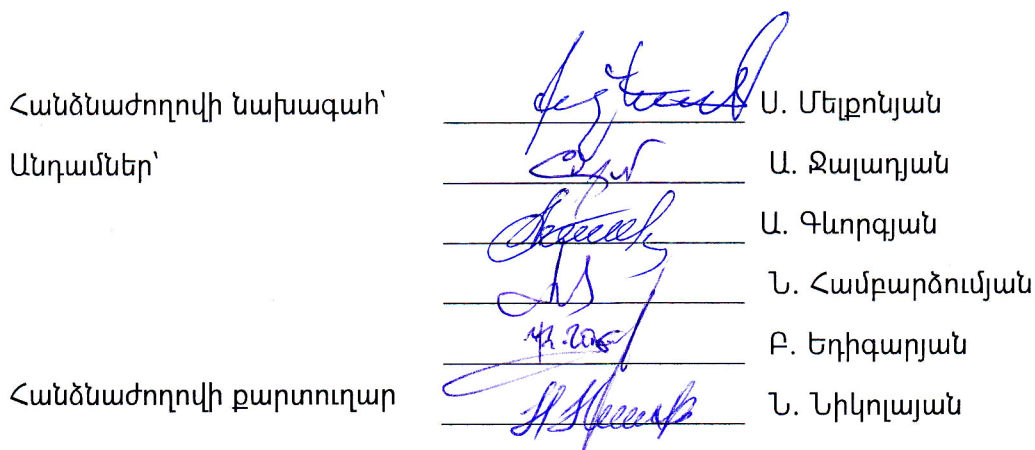 Հանձնաժողովի նախագահ՝ Ս. Մելքոնյան
Անդամներ՝ Ա. Ջալադյան
Ա. Գևորգյան
Ն. Համբարձումյան
Բ. Եդիգարյան
Հանձնաժողովի քարտուղար Ն. Նիկոլայան